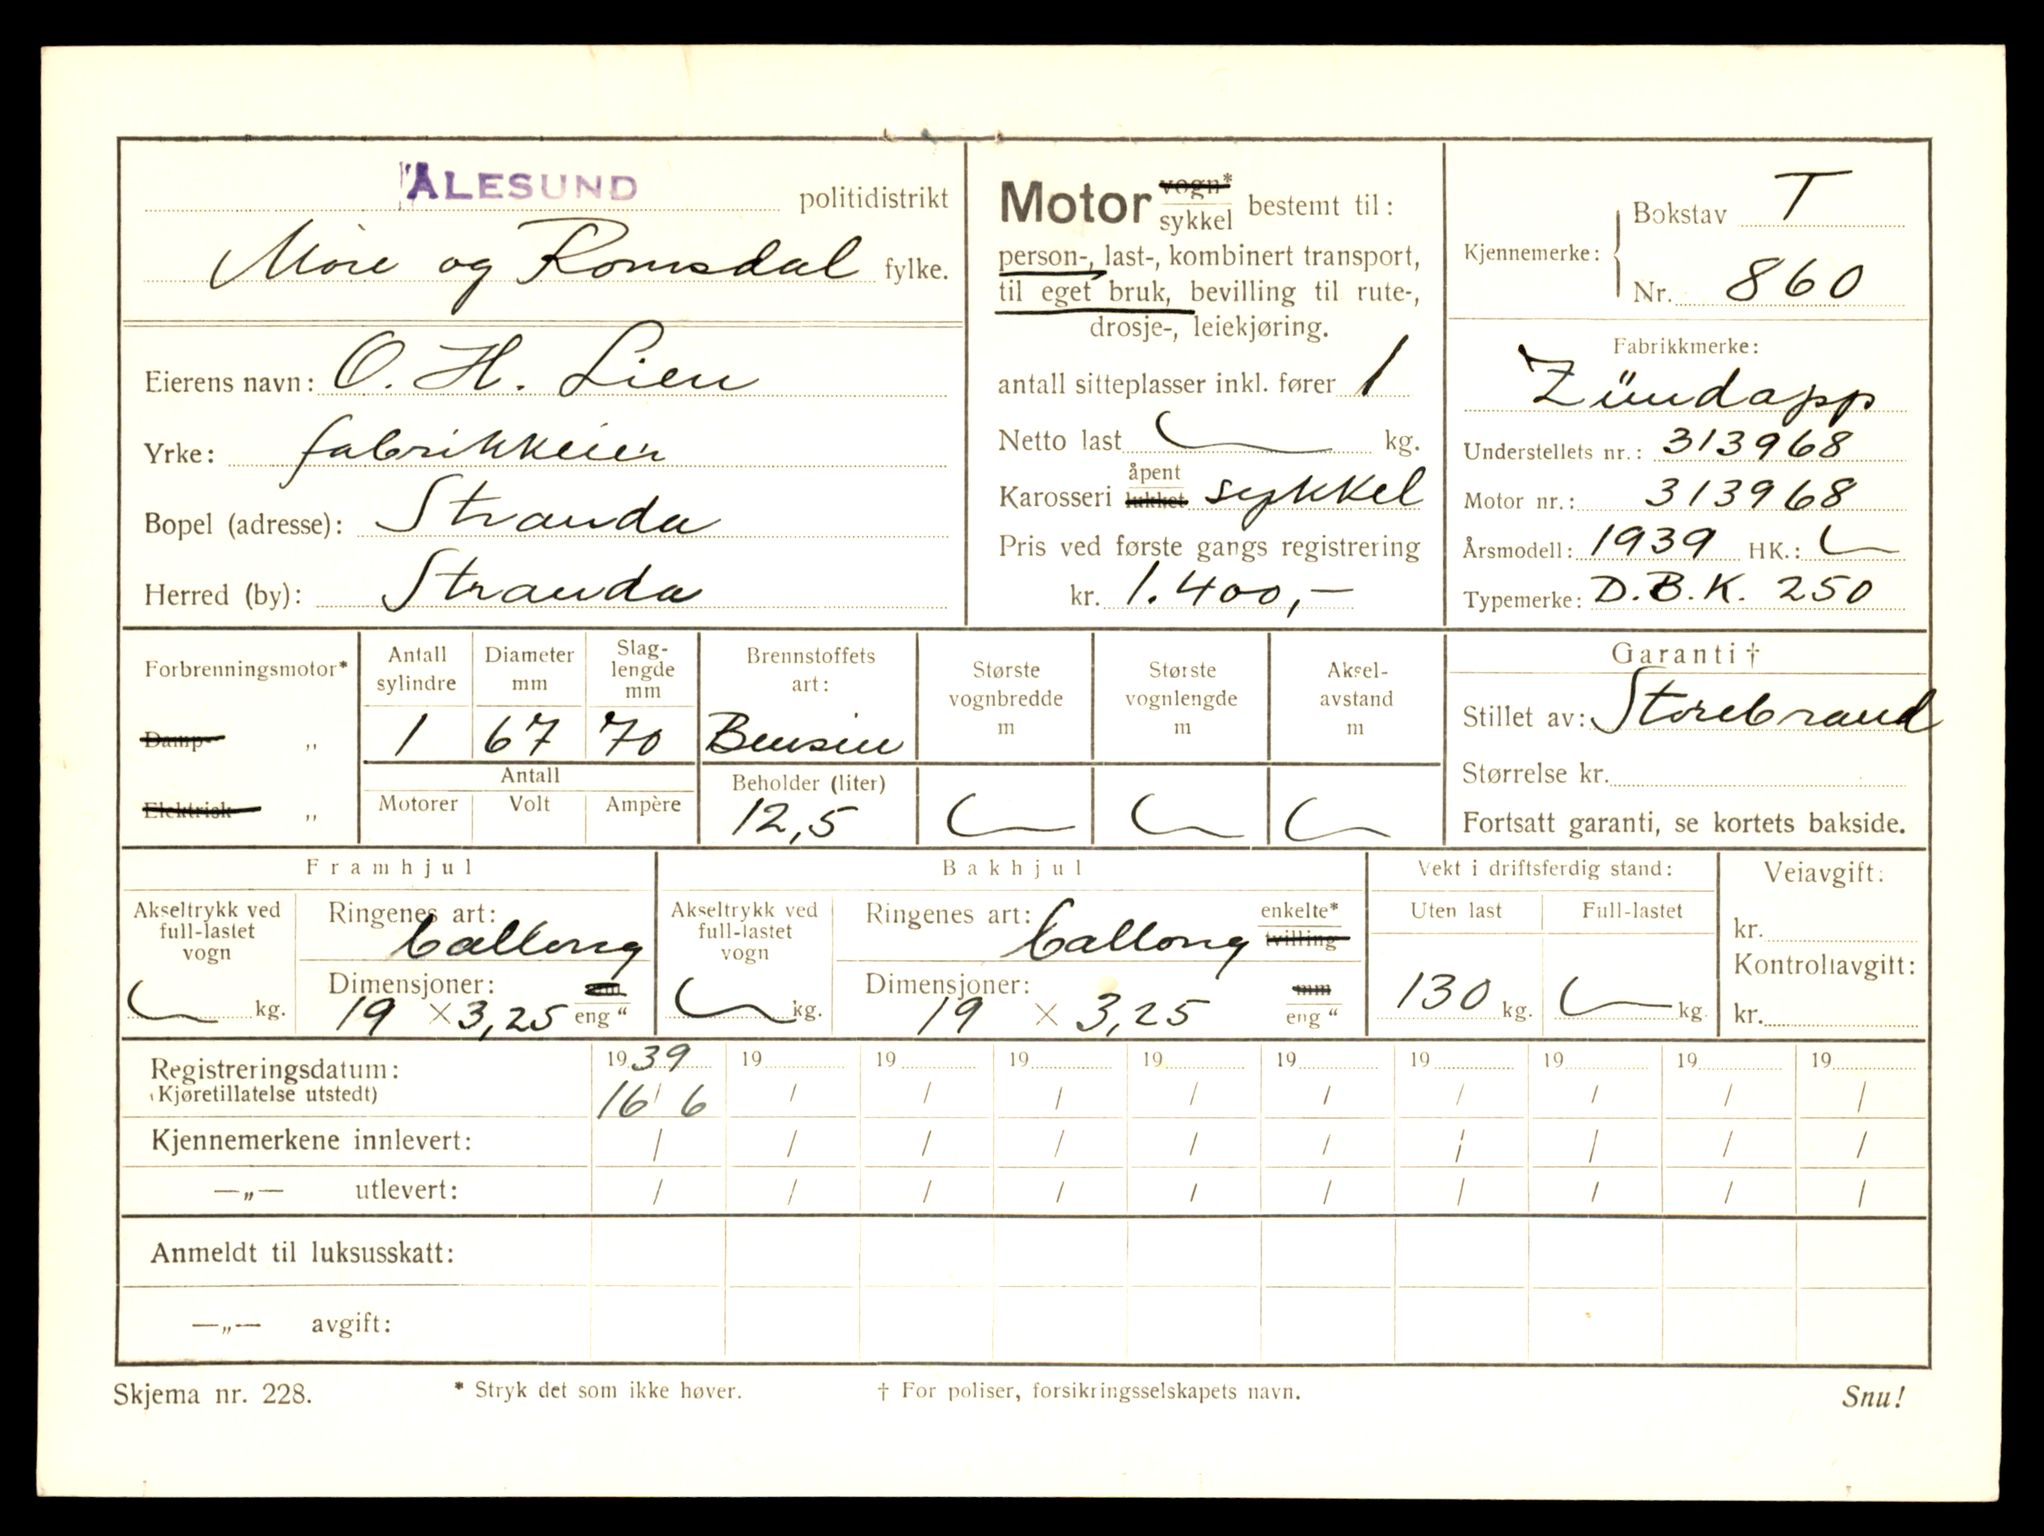 ÅLESUND politidistrikt
Møre og Romsdal fylke.
Eierens navn: O. H. Lien
Yrke: fabrikkeier
Bopel (adresse): Stranda
Herred (by): Stranda
Motor vogn* sykkel bestemt til:
person-, last-, kombinert transport,
til eget bruk, bevilling til rute-,
drosje-, leiekjøring.
antall sitteplasser inkl. fører 1
Netto last kg.
Karosseri åpent lukket sykkel
Pris ved første gangs registrering
kr. 1.400,-
Kjennemerke: Bokstav T
Nr. 860
Fabrikkmerke:
Zündapp
Understellets nr.: 313968
Motor nr.: 313968
Årsmodell: 1939 HK.:
Typemerke: D.B.K. 250
Forbrenningsmotor*
Damp- „
Elektrisk „
Antall sylindre
Diameter mm
Slaglengde mm
1 67 70
Antall
Motorer Volt Ampère
Brennstoffets art:
Bensin
Beholder (liter)
12,5
Største vognbredde m
Største vognlengde m
Aksel-avstand m
Garanti †
Stillet av: Storebrand
Størrelse kr.
Fortsatt garanti, se kortets bakside.
Framhjul
Akseltrykk ved full-lastet vogn
kg.
Ringenes art: ballong
Dimensjoner: mm
19 × 3,25 eng "
Bakhjul
Akseltrykk ved full-lastet vogn
kg.
Ringenes art: ballong enkelte* tvilling
Dimensjoner: mm
19 × 3,25 eng "
Vekt i driftsferdig stand:
Uten last Full-lastet
130 kg. kg.
Veiavgift:
kr.
Kontrollavgift:
kr.
Registreringsdatum: 19 39 19 19 19 19 19 19 19 19 19
(Kjøretillatelse utstedt) 16/6 / / / / / / / / /
Kjennemerkene innlevert: / / / / / / / / / /
—„— utlevert: / / / / / / / / / /
Anmeldt til luksusskatt:
—„— avgift:
Skjema nr. 228. * Stryk det som ikke høver. † For poliser, forsikringsselskapets navn. Snu!